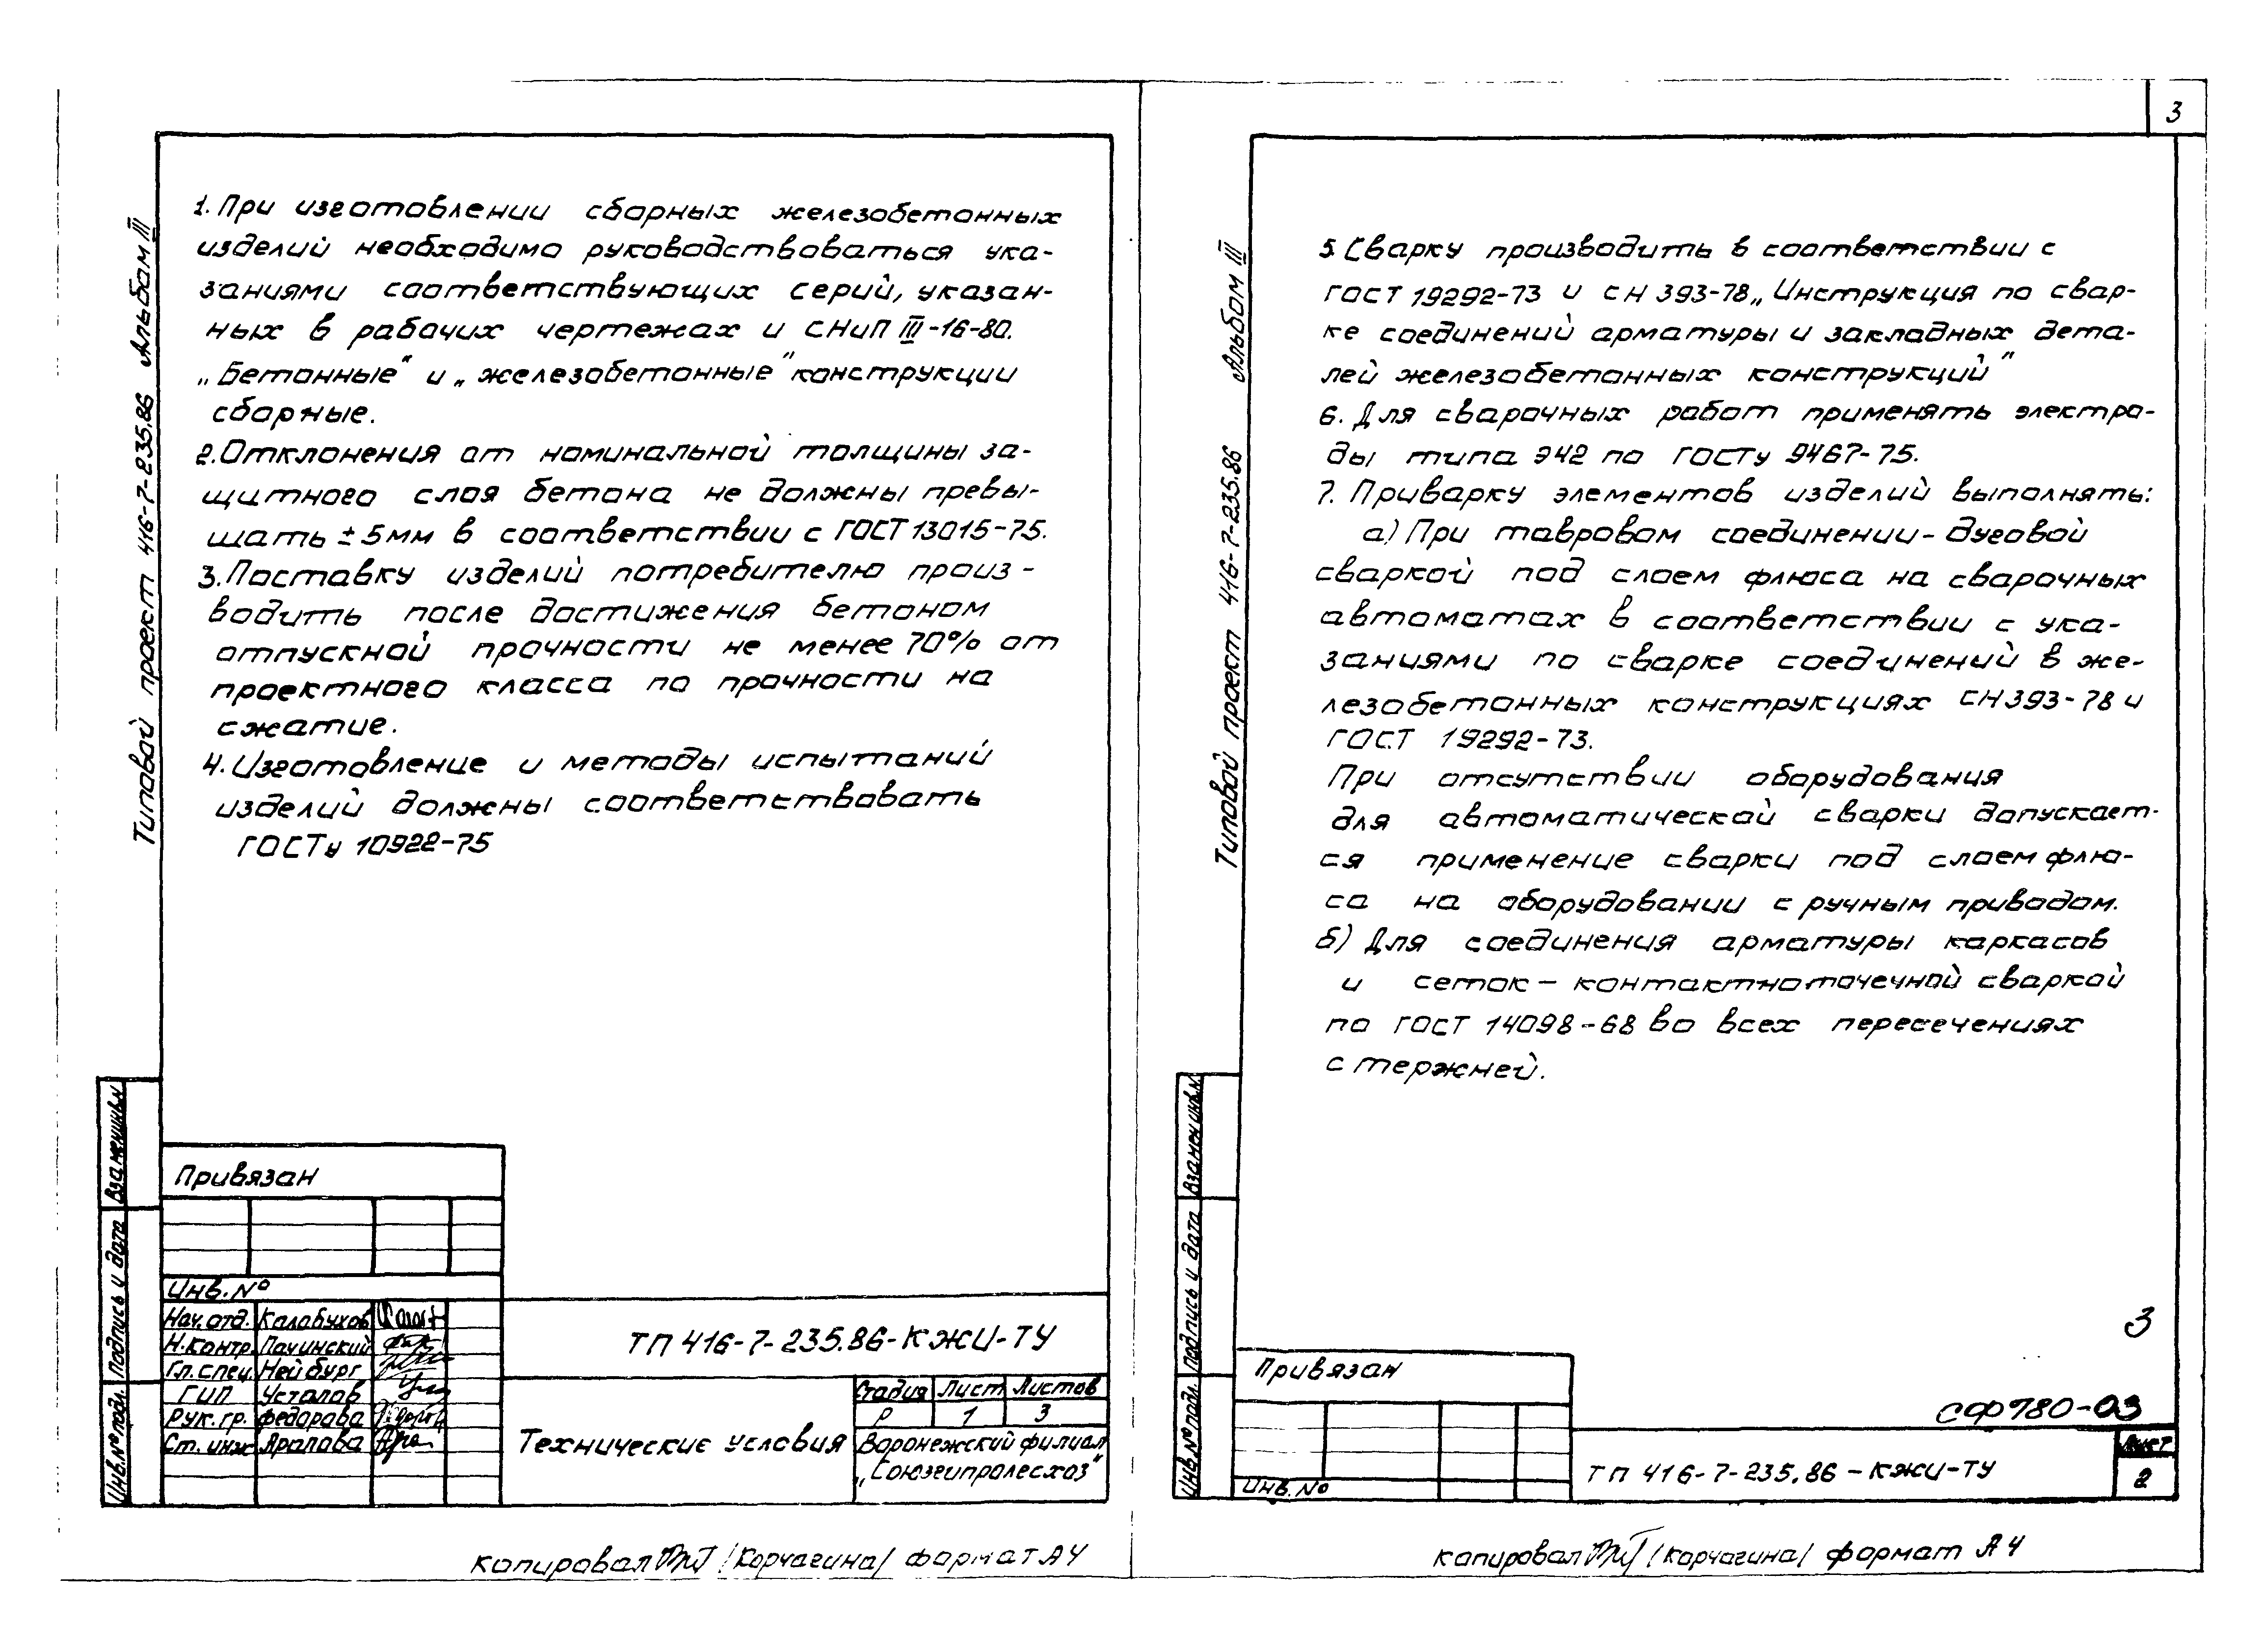 3
Типовой проект 416-7-235.86 Альбом III
1. При изготовлении сборных железобетонных
изделий необходимо руководствоваться ука-
заниями соответствующих серий, указан-
ных в рабочих чертежах и СНиП III-16-80.
„Бетонные“ и „железобетонные“ конструкции
сборные.
2. Отклонения от номинальной толщины за-
щитного слоя бетона не должны превы-
шать ± 5 мм в соответствии с ГОСТ 13015-75.
3. Поставку изделий потребителю произ-
водить после достижения бетоном
отпускной прочности не менее 70% от
проектного класса по прочности на
сжатие.
4. Изготовление и методы испытаний
изделий должны соответствовать
ГОСТу 10922-75
Взамен инв.N
Подпись и дата
Инв.№ подл.
Привязан
Инв.№
Нач.отд. Калабухов
Н.контр. Пачинский
Гл.спец. Нейбург
ГИП Усталов
Рук.гр. Федорова
Ст.инж Арапова
ТП 416-7-235.86-КЖИ-ТУ
Технические условия
Стадия Лист Листов
Р 1 3
Воронежский филиал
„Союзгипролесхоз“
копировал /Корчагина/ формат А4
Типовой проект 416-7-235.86 Альбом III
5. Сварку производить в соответствии с
ГОСТ 19292-73 и СН 393-78 „Инструкция по свар-
ке соединений арматуры и закладных дета-
лей железобетонных конструкций“
6. Для сварочных работ применять электро-
ды типа Э42 по ГОСТу 9467-75.
7. Приварку элементов изделий выполнять:
а) При тавровом соединении - дуговой
сваркой под слоем флюса на сварочных
автоматах в соответствии с ука-
заниями по сварке соединений в же-
лезобетонных конструкциях СН 393-78 и
ГОСТ 19292-73.
При отсутствии оборудования
для автоматической сварки допускает-
ся применение сварки под слоем флю-
са на оборудовании с ручным приводом.
б) Для соединения арматуры каркасов
и сеток - контактноточечной сваркой
по ГОСТ 14098-68 во всех пересечениях
стержней.
Взамен инв.N
Подпись и дата
Инв.№ подл.
3
Привязан
Инв.№
СФ780-03
ТП 416-7-235.86-КЖИ-ТУ
Лист
2
копировал /Корчагина/ формат А4